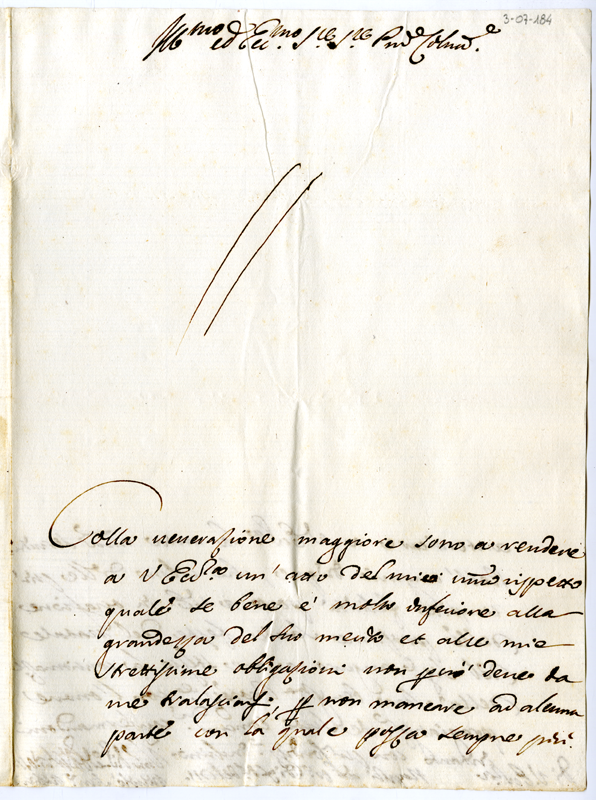 3-07-184
Ill.mo ed Ecc.mo Sig.re Sig.re Pne Colmo
Colla venerazione maggiore sono a rendere
a V Ecc.za un' atto del mio umile rispetto
quale se bene è molto inferiore alla
grandezza del suo merito et alle mie
strettissime obligazioni non però deve da
me tralasciarsi, p non mancare ad alcuna
parte con la quale possa sempre più